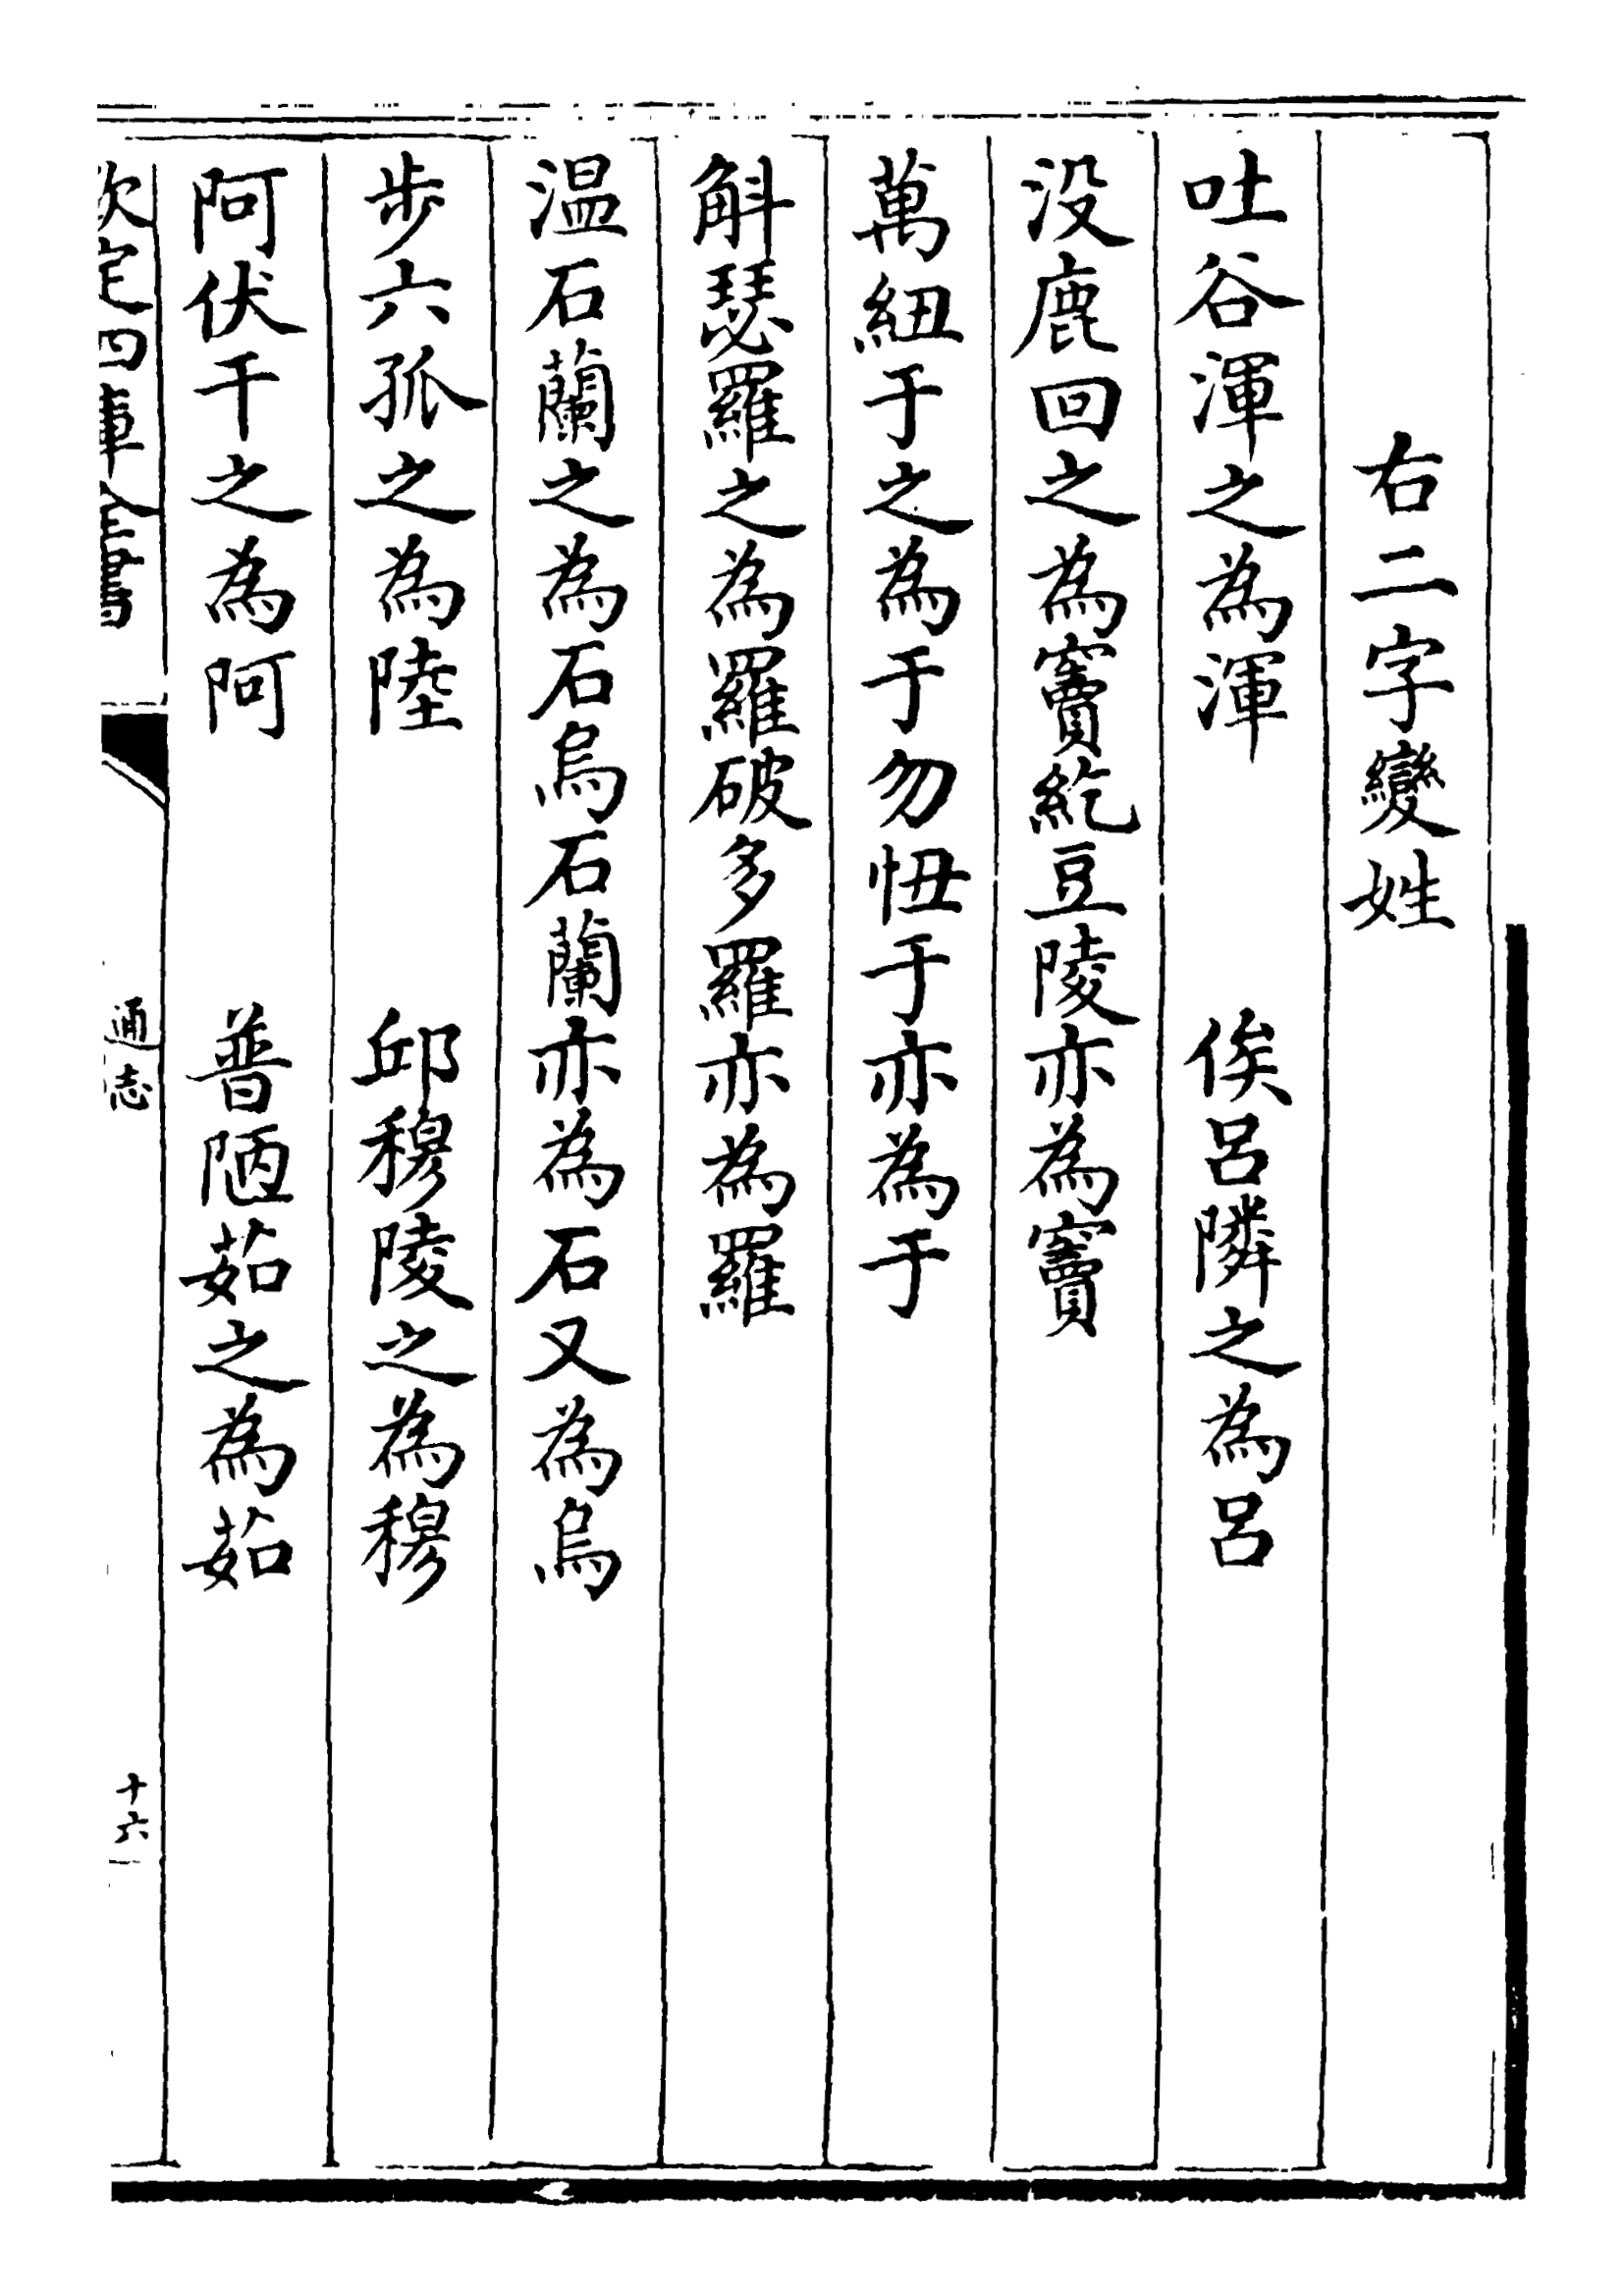 右二字變姓
吐谷渾之為渾 俟呂隣之為呂
没鹿回之為竇紇豆陵亦為竇
萬紐于之為于勿忸于亦為于
斛瑟羅之為羅破多羅亦為羅
温石蘭之為石烏石蘭亦為石又為烏
步六孤之為陸 邱穆陵之為穆
阿伏干之為阿 普陋茹之為茹
欽定四庫全書
通志
十六